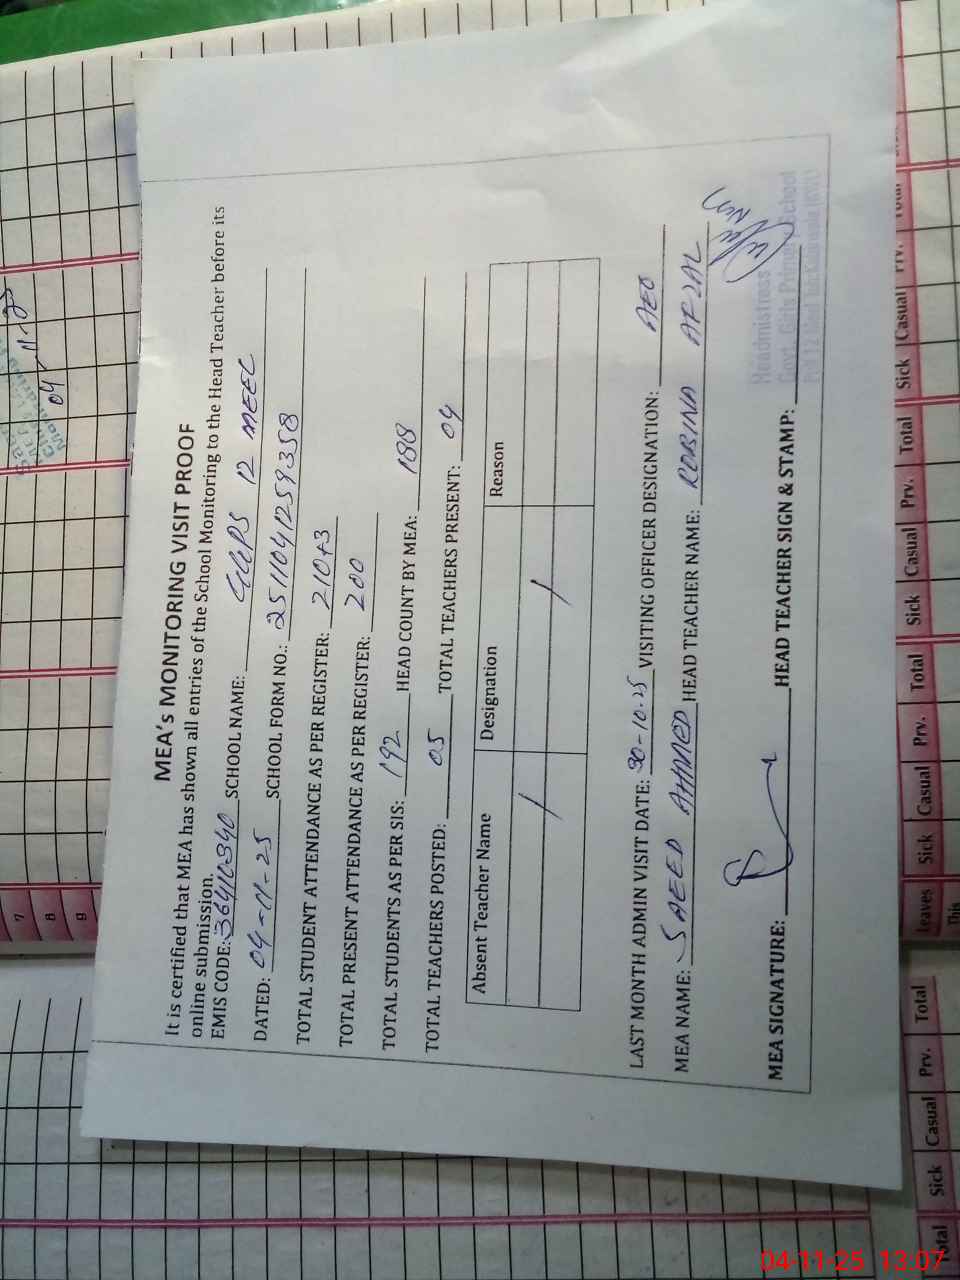 MEA's MONITORING VISIT PROOF
It is certified that MEA has shown all entries of the School Monitoring to the Head Teacher before its
online submission.
EMIS CODE: 36410340 SCHOOL NAME: GGPS 12 MEEL
DATED: 04-11-25 SCHOOL FORM NO.: 2511041259358
TOTAL STUDENT ATTENDANCE AS PER REGISTER: 210+3
TOTAL PRESENT ATTENDANCE AS PER REGISTER: 200
TOTAL STUDENTS AS PER SIS: 192 HEAD COUNT BY MEA: 188
TOTAL TEACHERS POSTED: 05 TOTAL TEACHERS PRESENT: 04
Absent Teacher Name Designation Reason
LAST MONTH ADMIN VISIT DATE: 30-10-25 VISITING OFFICER DESIGNATION: AEO
MEA NAME: SAEED AHMED HEAD TEACHER NAME: ROBINA AFZAL
MEA SIGNATURE: HEAD TEACHER SIGN & STAMP:
Headmistress
Govt. Girls Primary School
04-11-25
7
8
9
Leaves Sick Casual Prv. Total Sick Casual Prv. Total Sick Casual Prv. Total
This
Total Sick Casual Prv. Total
04-11-25 13:07